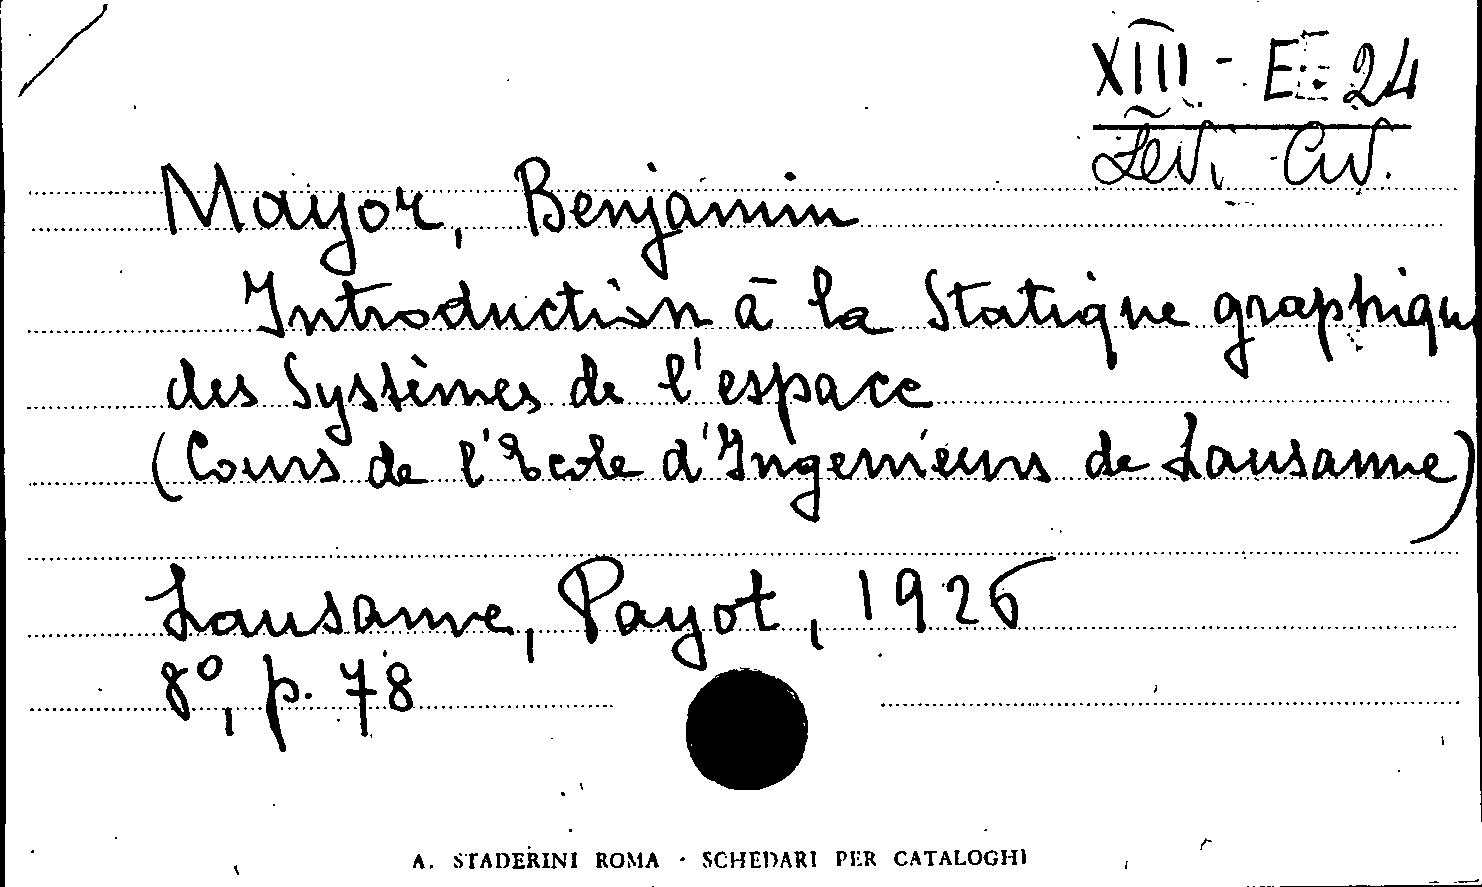 XIII - E 24
Lev. Civ.
Mayor, Benjamin
Introduction à la Statique graphique
des Systèmes de l'espace
(Cours de l'Ecole d'Ingenieurs de Lausanne)
Lausanne, Payot, 1926
8°, p. 78
A. STADERINI ROMA - SCHEDARI PER CATALOGHI